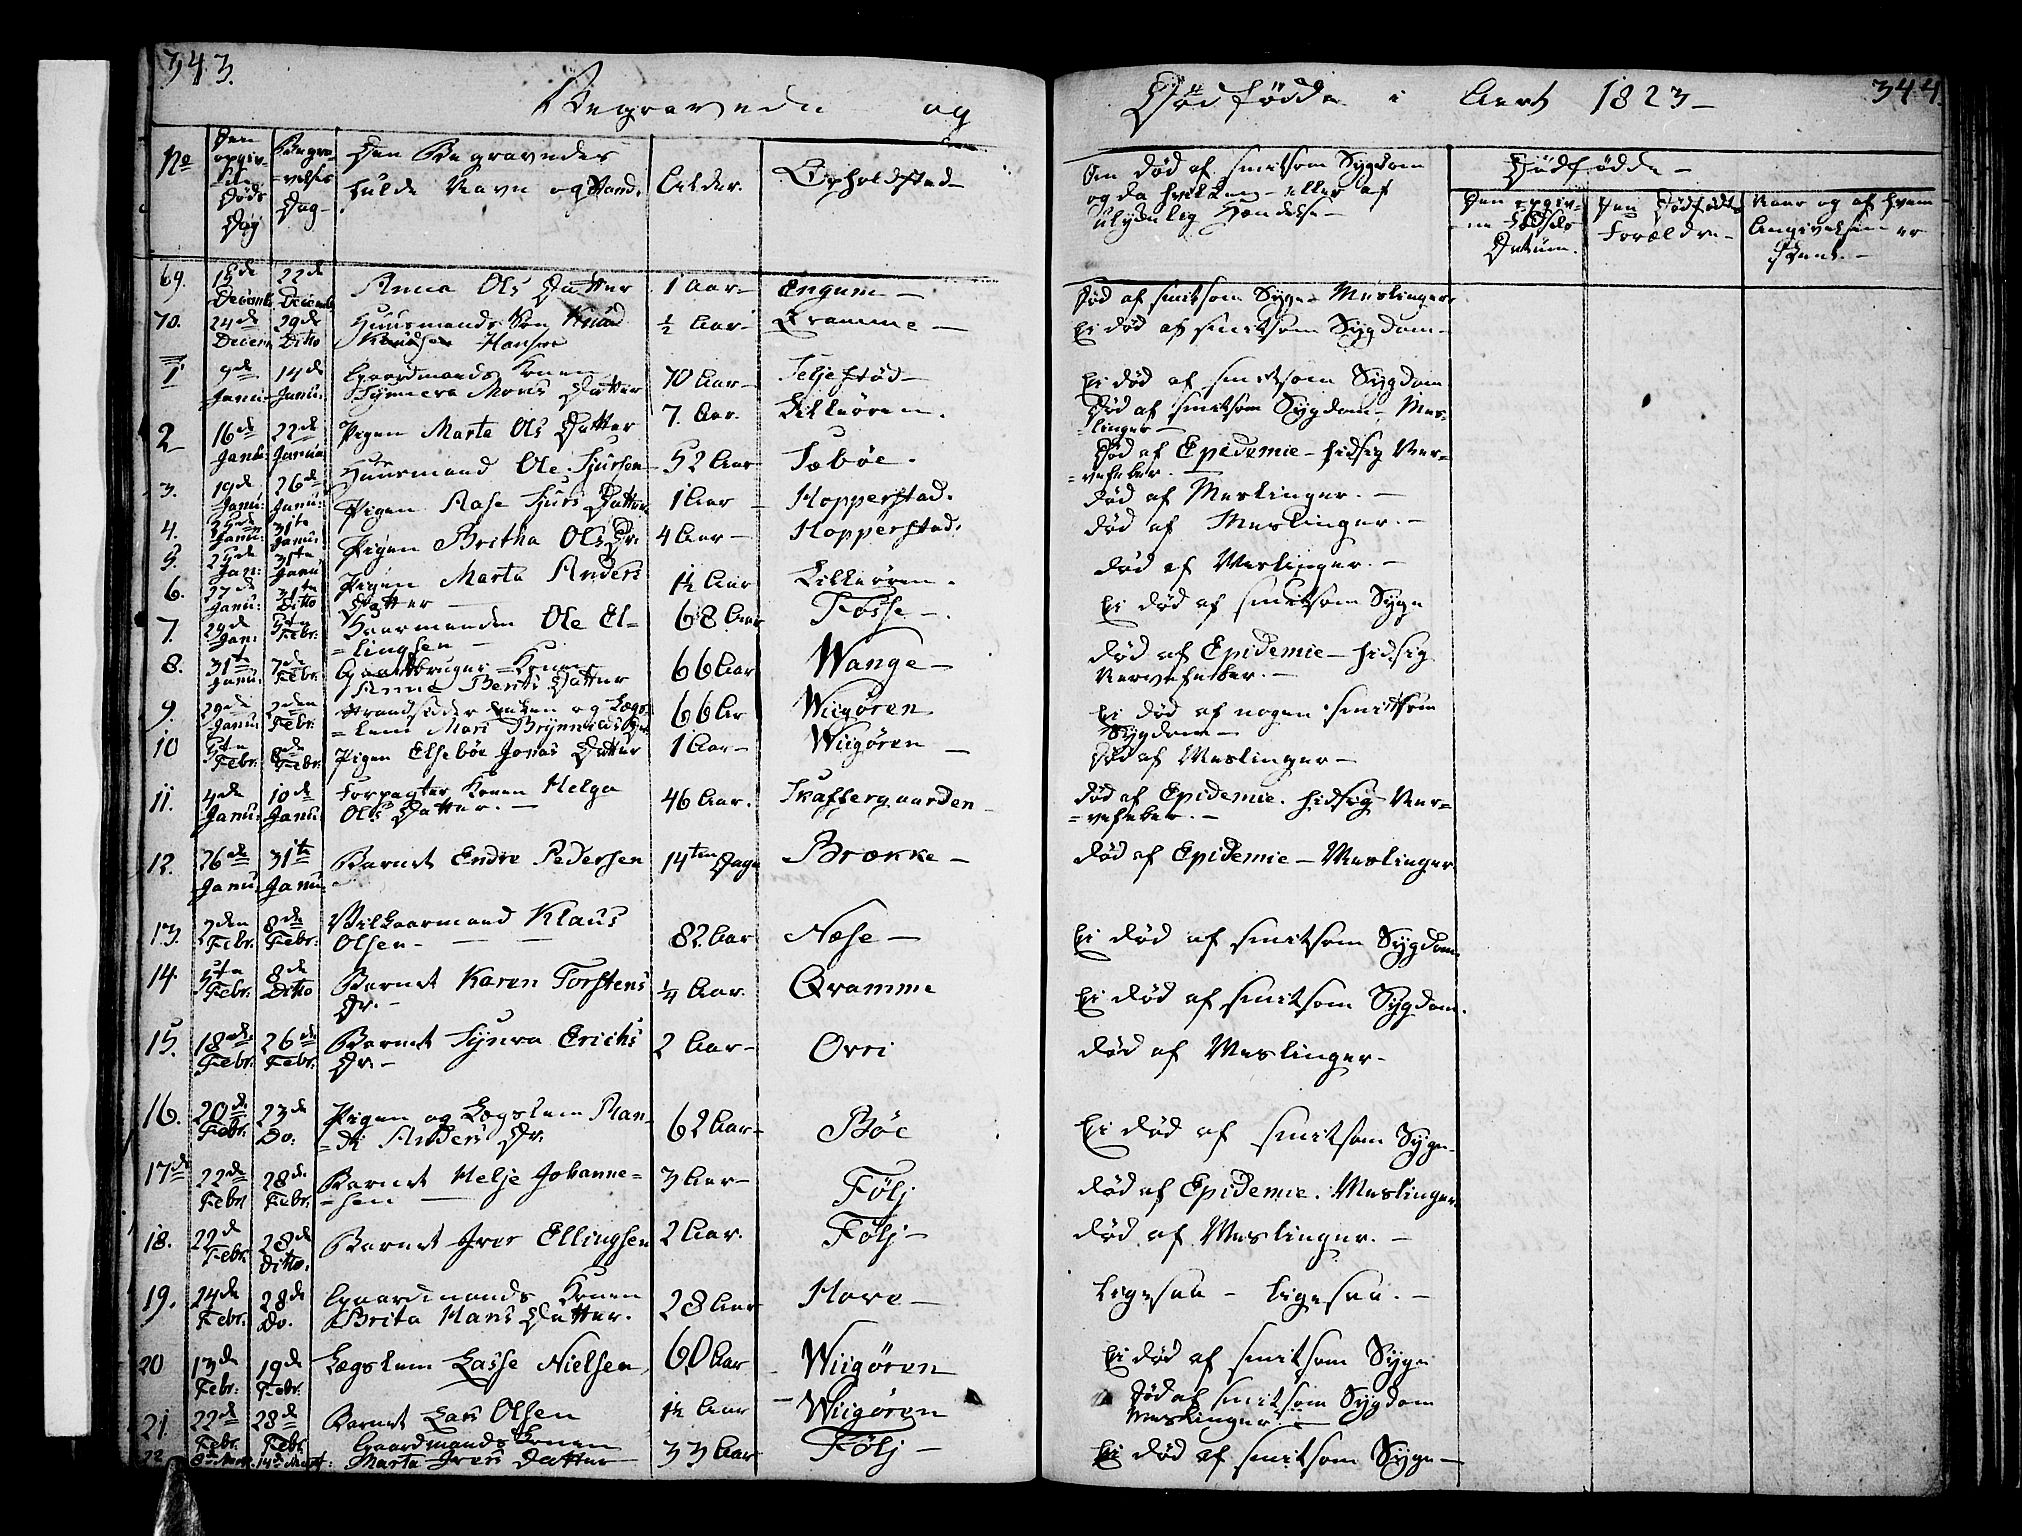 343.
Begravede og
Dödfødde i Aaret 1823 -
344
No
Den opgivne Døds Dag
Begravelses Dag -
Den Begravedes fulde Navn og Stand.
Alder.
Opholdsted -
Om død af smitsom Sygdom
og da hvilken - eller af
ulykkelig Hændelse -
Dödfødde -
Den opgivne Fødsels Datum.
Den Dødfødtes Forældre -
Naar og af hvem Angivelsen er skeet. -
69. 18de Decemb 22de Decemb Anna Ols Datter 1 Aar - Engum - død af smitsom Syge - Meslinger
70. 24de Decem 29de Ditto Huusmands Søn Knud Hansen ½ Aar - Qvamme - Ei død af smitsom Sygdom -
1 9de Janu: 14de Janu: Gaardmands Konen Synneva Mons Datter 70 Aar - Teljestød - Ei død af smitsom Sygdom
2 16de Janu: 22de Janu: Pigen Marta Ols Datter 7. Aar Lekøren. død af smitsom Sygdom - Meslinger -
3. 19de Janu: 26de Janu: Huusmand Ole Sjursen 52 Aar Sæbøe. død af Epidemie - hidsig Nervefeber. -
4. 25de Janu: 31te Janu: Pigen Aase Sjurs Datter 1 Aar - Hopperstad. død af Meslinger. -
5. 25de Jan: 31te Janu Pigen Britha Ols Dr. 4 Aar - Hopperstad. død af Meslinger. -
6. 27de Janu: 31te Ditto Pigen Marta Anders Datter - 1½ Aar Lekøren. død af Meslinger. -
7. 29de Jan: 5te Febr: Ole Ellingsen - 68 Aar Fosse - Ei død af smitsom Syge
8. 31te Janu: 7de Febr: Gaardbruger - Konen Anna Bents Datter 66 Aar Wange - død af Epidemie - hidsig Nervefeber. -
9. 29de Janu: 2den Febr Strandsidder Enken og Lægslem Mari Brynnilds Dr 66 Aar Wiigøren Ei død af nogen smitsom Sygdom -
10 5te Febr: 8de Febr: Pigen Elsebøe Jonas Datter 1 Aar - Wiigøren - død af Meslinger -
11. 4de Janu: 10de Janu: Forpagter Konen Helga Ols Datter. - 46 Aar. Skaftergaarden - død af Epidemie. hidsig Nervefeber. -
12. 26de Janu: 31te Janu: Barnet Endre Pedersen 14ten Dage Brække - død af Epidemie - Meslinger
13. 2den Febr: 8de Febr: Vilkaarmand Klaus Olsen - 82 Aar Næse - Ei død af smitsom Sygdom.
14. 5te Febr: 8de Ditto Barnet Karen Torstens Dr. - ¼ Aar. Qvamme Ei død af smitsom Sygdom.
15. 18de Febr: 26de Febr: Barnet Synva Erichs Dr. - 2 Aar - Orri død af Meslinger -
16. 20de Febr: 23de Do. Pigen og Lægslem Randi Anders Dr. 62 Aar - Bøe Ei død af smitsom Syge -
17de 22de Febr 28de Febr. Barnet Helje Johannesen - 3 Aar - Følj død af Epidemie. Meslinger
18. 22de Febr: 28de Ditto. Barnet Iver Ellingsen 2 Aar. Følj - død af Meslinger. -
19. 24de Febr: 28de Do. Gaardmands Konen Brita Hans Datter. 28 Aar Hove - Ligesaa - Ligesaa. -
20 13de Febr: 19de Febr. Lægslem Lasse Nielsen 60 Aar Wiigøren Ei død af smitsom Syge
21. 22de Febr. 28de Febr. Barnet Lars Olsen 1½ Aar Wiigøren død af smitsom Sygdom Meslinger -
22 14de Mart: Gaardmands Konen Marta Ivers Datter 33 Aar Følj - Ei død af smitsom Syge -